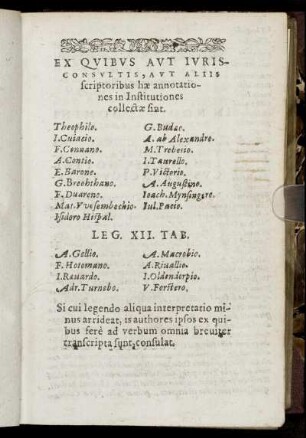 EX QVIBVS AVT IVRIS-
CONSVLTIS, AVT ALIIS
scriptoribus hæ annotatio-
nes in Institutiones
collectæ sint.
Theophilo. G. Budæo.
I. Cuiacio. A. ab Alexandro.
F. Connano. M. Trebesio.
A. Contio. I. Taurello.
E. Barone. P. Victorio.
G. Brochthano. A. Augustino.
F. Duareno. Ioach. Mynsingero.
Mat. VVesembechio. Iul. Pacio.
Isidoro Hispal.
LEG. XII. TAB.
A. Gellio. A. Macrobio.
F. Hotomano. A. Riuallio.
I. Rauardo. I. Oldendorpio.
Adr. Turnebo. V. Forstero.
Si cui legendo aliqua interpretatio mi-
nus arrideat, is authores ipsos ex qui-
bus ferè ad verbum omnia breuiter
transcripta sunt, consulat.